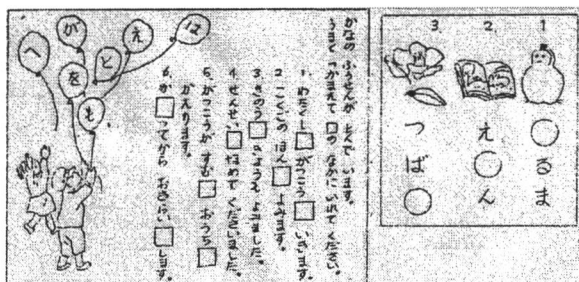 1
○るま
2.
え○ん
3.
つば○
かなの ふうせんが とんで います。
うまく つかまえて □の なかに いれて ください。
1. わたくし□ がつこう□ いきます。
2. こくごの ほん□ よみます。
3. きのう□ よみました。
4. せんせい□ ほめて くださいました。
5. がつこうが すむ□ おうち□
かえります。
6. か□つてから おさらい□します。
は
え
と
が
を
も
へ